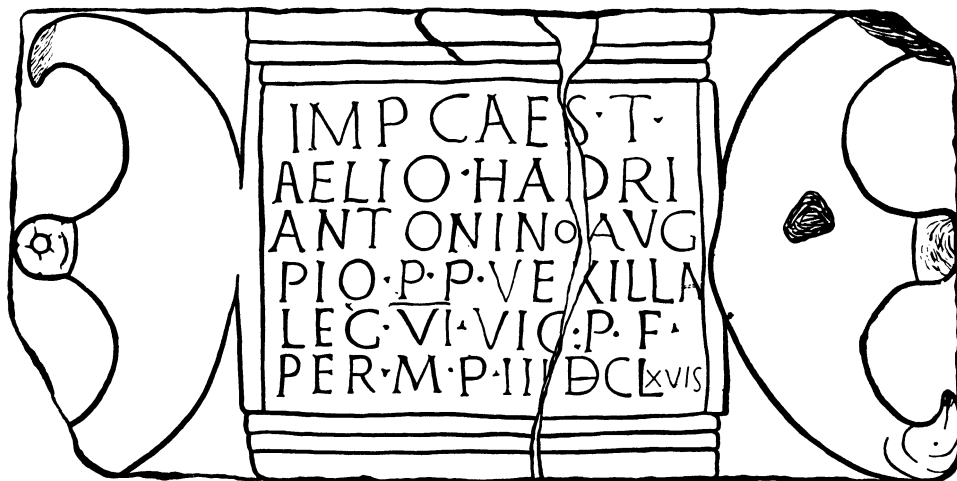 IMP CAES·T·
AELIO·HADRI
ANTONINO AVG
PIO·P·P·VEXILLA
LEG·VI·VIC·P·F·
PER·M·P·III ĐCLXVIS